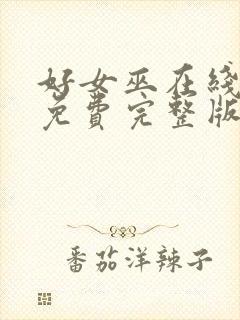 好女巫在线
免费完整版
番茄洋辣子